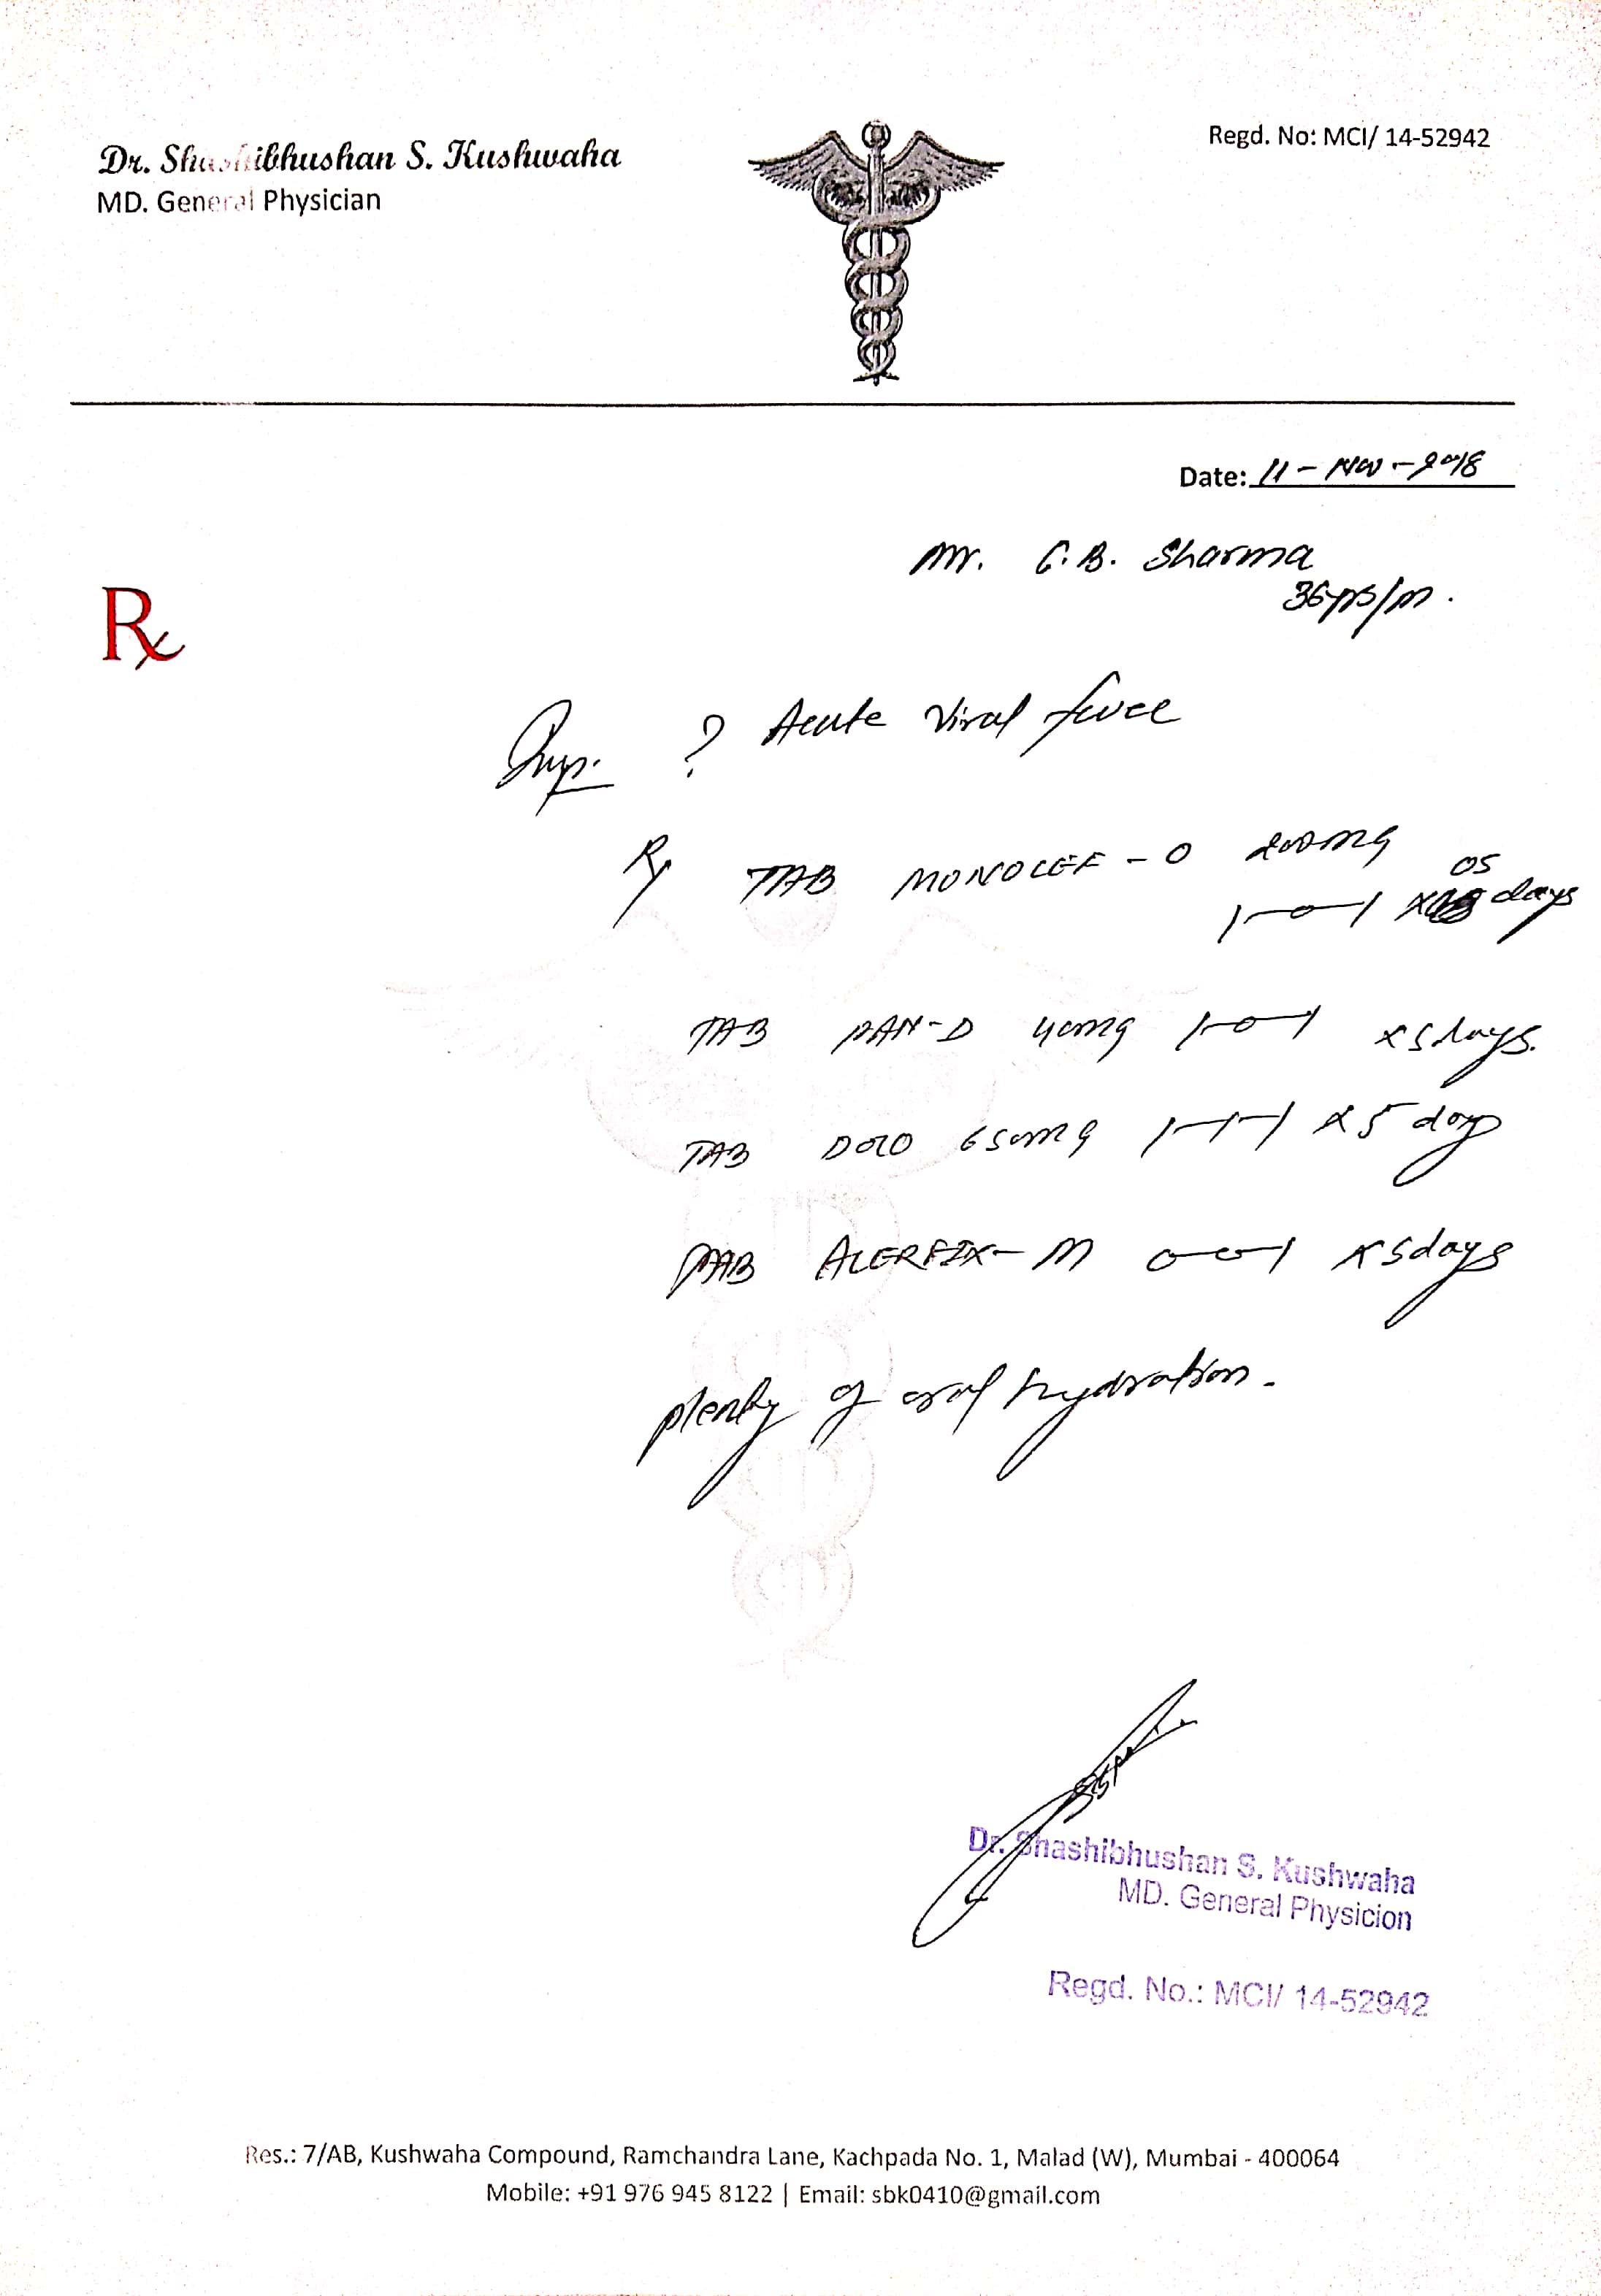 Dr. Shashibhushan S. Kushwaha
MD. General Physician
Regd. No: MCI/ 14-52942
Date: 11 - Nov - 2018
Mr. C.B. Sharma
36yrs/m.
Rx
Imp. ? Acute Viral fever
Rx TAB MONOCEF - O 200mg
1-0-1 x 05 days
TAB PAN-D 40mg 1-0-1 x 5days.
TAB DOLO 650mg 1-1-1 x 5 day
TAB ALERFIX - M 0-0-1 x 5days
plenty of oral hydration.
Dr. Shashibhushan S. Kushwaha
MD. General Physicion
Regd. No.: MCI/ 14-52942
Res.: 7/AB, Kushwaha Compound, Ramchandra Lane, Kachpada No. 1, Malad (W), Mumbai - 400064
Mobile: +91 976 945 8122 | Email: sbk0410@gmail.com